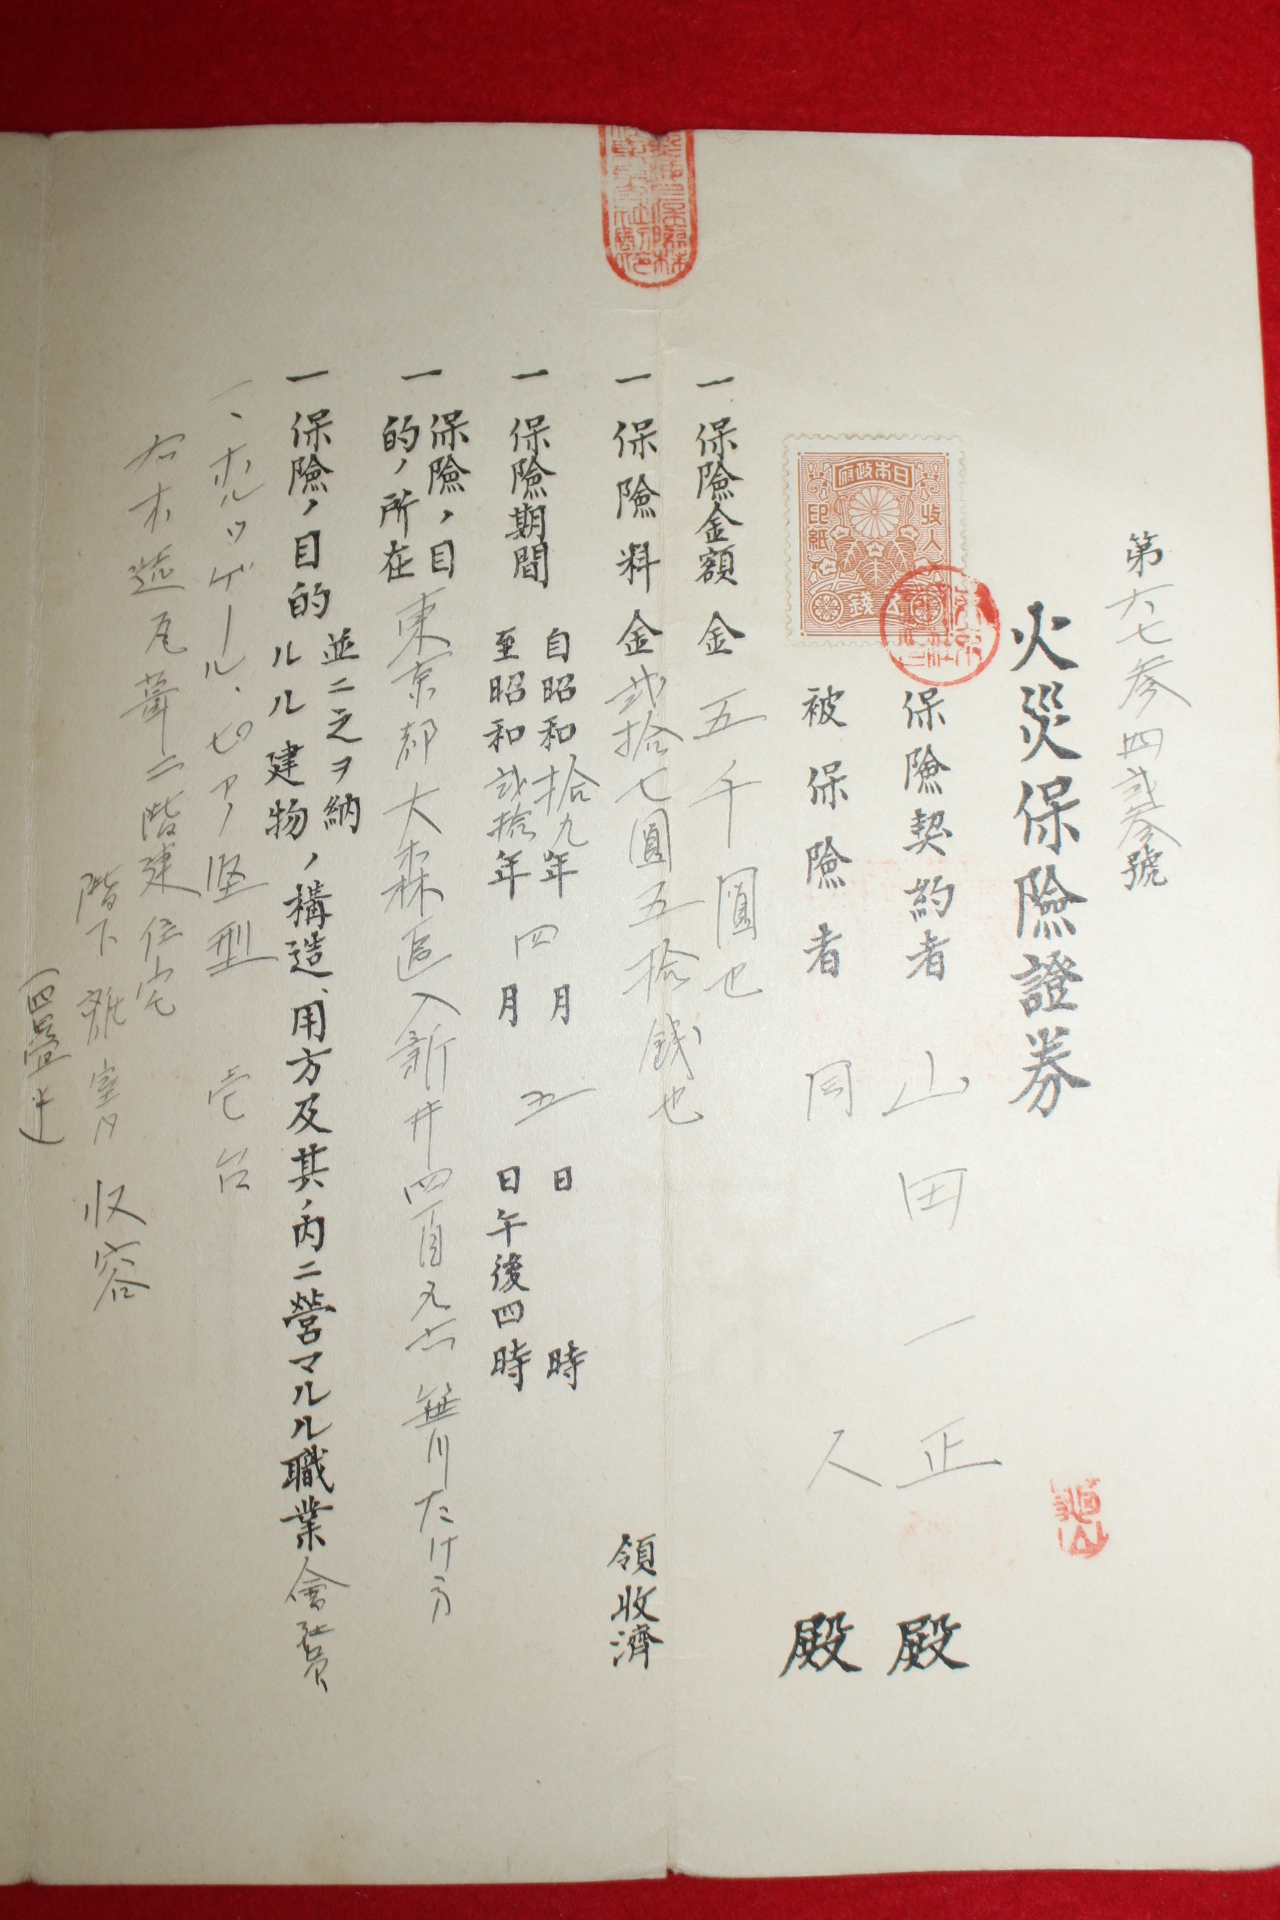 第六七参四弐参號
火災保險證券
日本政府
收入
印紙
五錢
保險契約者 山田一正 殿
被保險者 同人 殿
一保險金額 金五千圓也
一保險料 金弐拾七圓五拾銭也 領收濟
一保險期間
自昭和拾九年四月五日 時
至昭和弐拾年四月五日午後四時
一保險ノ目的ノ所在 東京都大森區入新井四ノ百九六 無川たけ方
一保險ノ目的並ニ之ヲ納ルル建物ノ構造、用方及其ノ内ニ營マルル職業 會社員
一、ホルツゲール、ピアノ竪型 壱台
右木造瓦葺二階建住宅
階下離室内 収容
(四畳半)